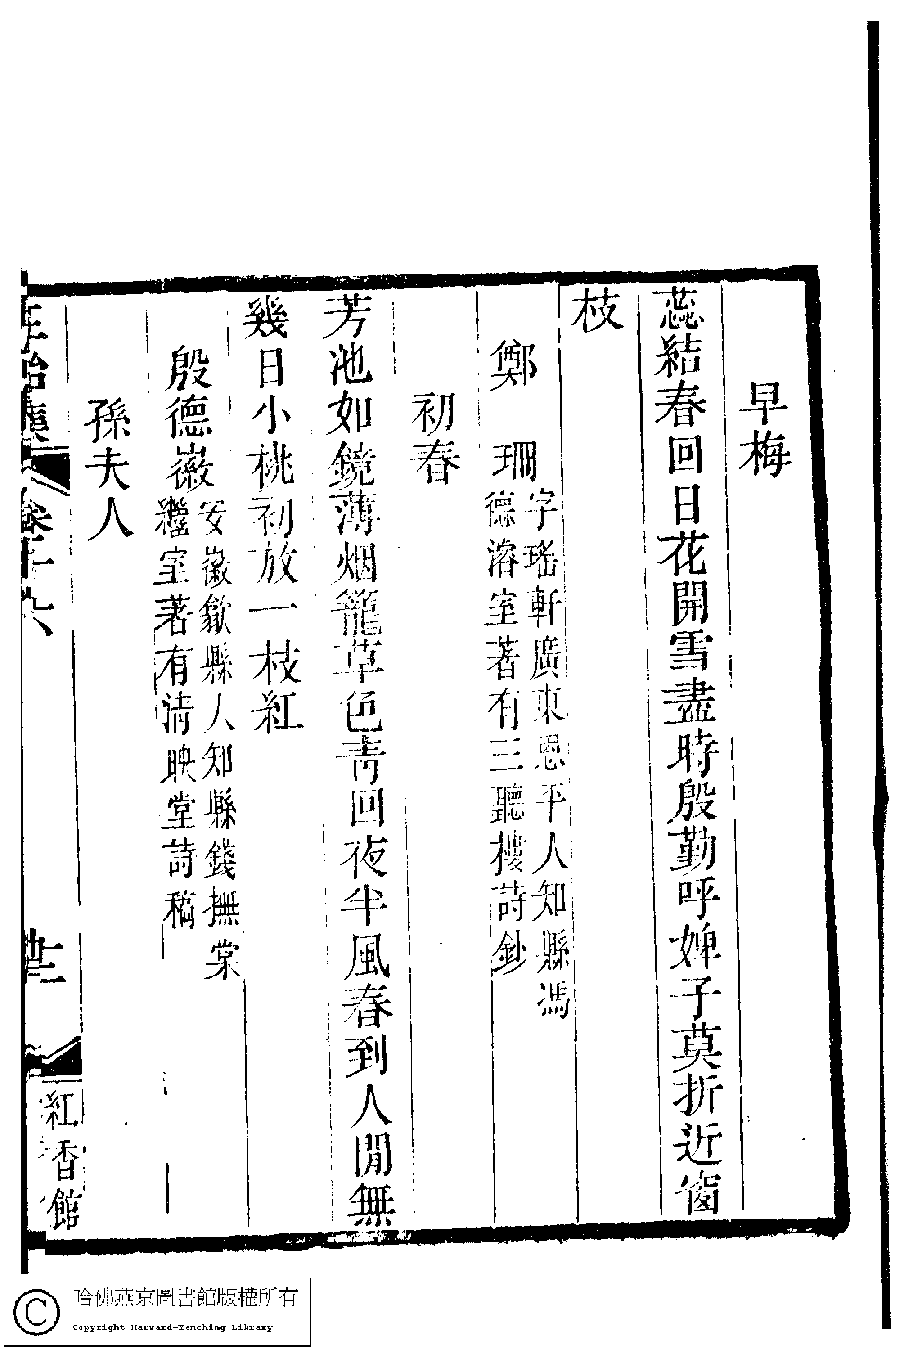 早梅
蕊結春回日花開雪盡時殷勤呼婢子莫折近窗
枝
鄭　珊
字瑤軒廣東恩平人知縣馮
德溶室著有三聽樓詩鈔
初春
芳池如鏡薄烟籠草色青回夜半風春到人閒無
幾日小桃初放一枝紅
殷德徽
安徽歙縣人知縣錢撫棠
繼室著有清映堂詩稿
孫夫人
卷十六
廿二
紅香館
哈佛燕京圖書館版權所有
Copyright Harvard-Yenching Library